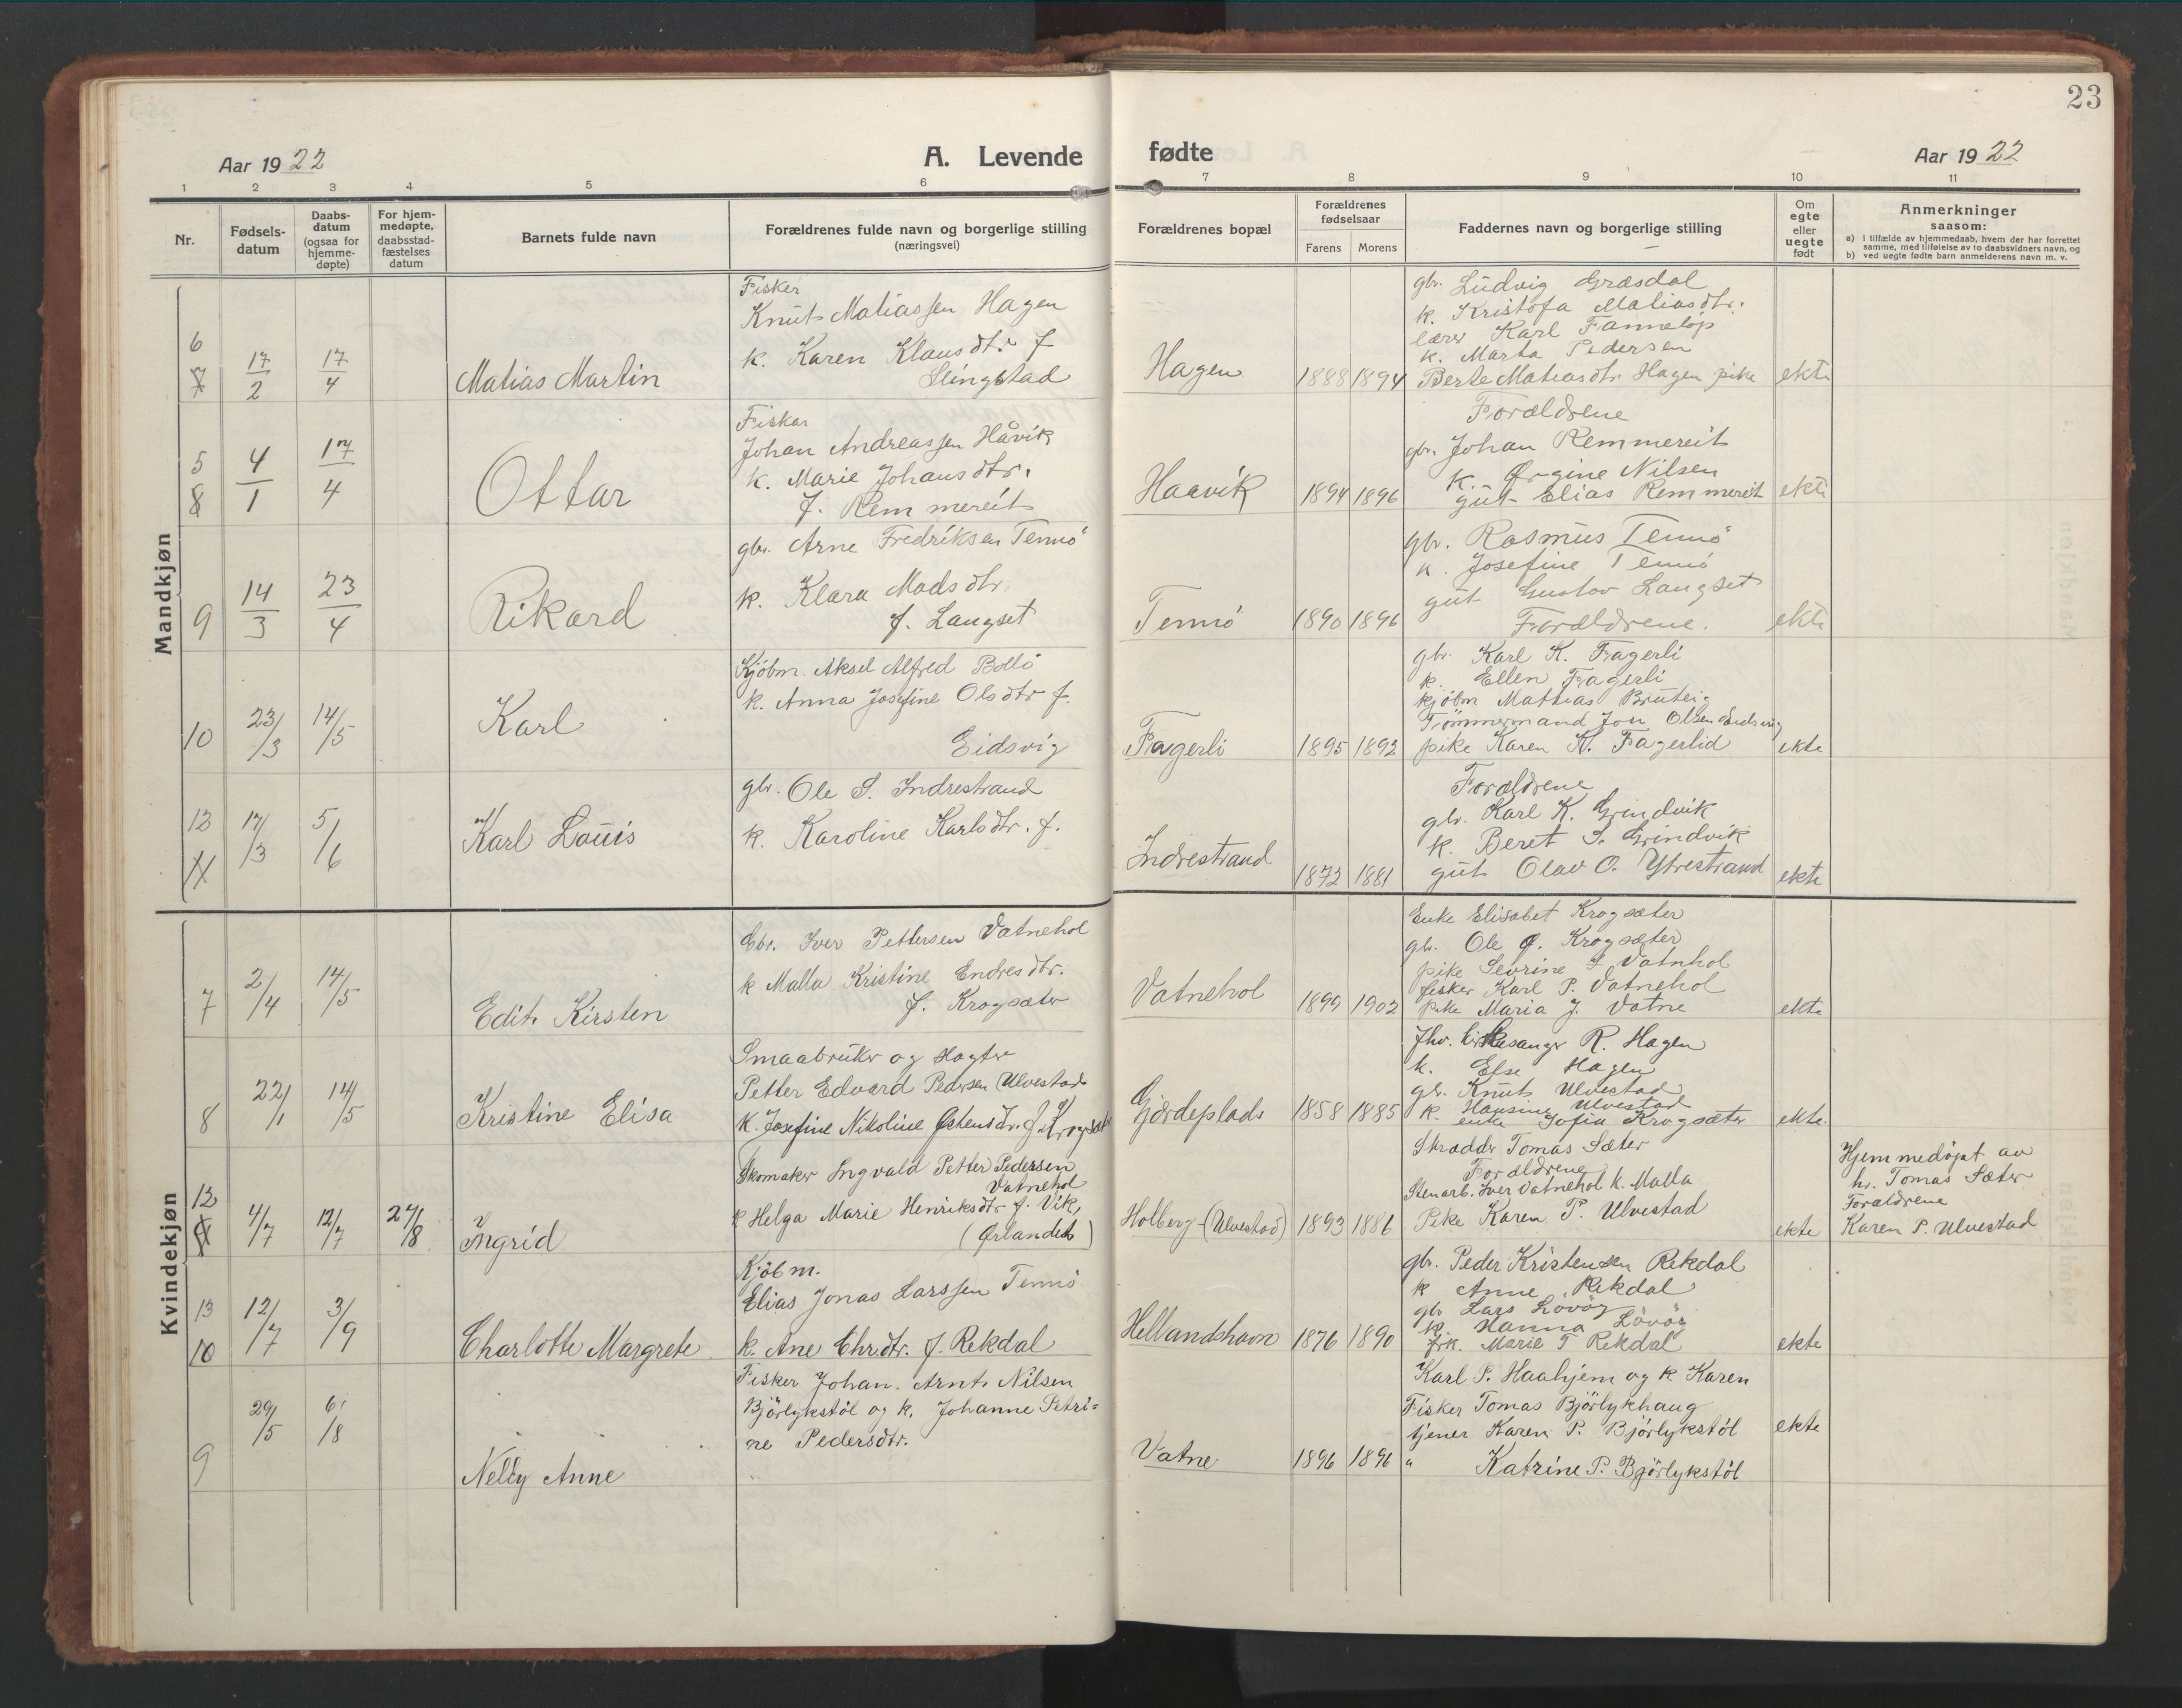 23
Aar 1922
A. Levende
fødte
Aar 1922
1 2 3 4 5 6 7 8 9 10 11
Nr.
Fødsels-
datum
Daabs-
datum
(ogsaa for
hjemme-
døpte)
For hjem-
medøpte,
daabsstad-
fæstelses
datum
Barnets fulde navn
Forældrenes fulde navn og borgerlige stilling
(næringsvei)
Forældrenes bopæl
Forældrenes
fødselsaar
Farens Morens
Faddernes navn og borgerlige stilling
Om
egte
eller
uegte
født
Anmerkninger
saasom:
a) i tilfælde av hjemmedaab, hvem der har forrettet
samme, med tilføielse av to daabsvidners navn, og
b) ved uegte fødte barn anmelderens navn m. v.
Mandkjøn
6
7
17/2
17/4
Matias Martin
Fisker
Knut Matiassen Hagen
k. Karen Klausdtr. f
Slingstad
Hagen
1888 1894
gbr. Ludvig Græsdal
k. Kristofa Matiasdtr.
lærer Karl Fannelöp
k. Marta Pedersen
Berte Matiasdtr. Hagen pike
ekte
5
8
4/1
17/4
Ottar
Fisker
Johan Andreassen Håvik
k. Marie Johansdtr.
f. Remmereit
Haavik
1894 1896
Forældrene
gbr. Johan Remmereit
k. Ørgine Nilsen
gut Elias Remmereit
ekte
9
14/3
23/4
Rikard
gbr. Arne Fredriksen Tennö
k. Klara Madsdtr.
f. Langset
Tennö
1890 1896
gbr. Rasmus Tennö
k. Josefine Tennö
gut Gustav Langset
Forældrene.
ekte
10
23/3
14/5
Karl
Kjöbm. Aksel Alfred Bollö
k. Anna Josefine Olsdtr f.
Eidsvig
Fagerli
1895 1892
gbr. Karl K. Fagerli
k. Ellen Fagerli
kjöbm Mathias Bruteig
Tömmermand Jon Olsen Eidsvig
pike Karen K. Fagerlid
ekte
12
11
17/3
5/6
Karl Louis
gbr. Ole S. Indrestrand
k. Karoline Karlsdtr. f.
Indrestrand
1872 1881
Forældrene
gbr. Karl K. Grindvik
k. Beret S. Grindvik
gut Olav O. Ytrestrand
ekte
Kvindekjøn
7
2/4
14/5
Edit Kirsten
Gbr. Iver Pettersen Vatnehol
k Malla Kristine Endresdtr.
f. Krogsæter
Vatnehol
1899 1902
Enke Elisabet Krogsæter
gbr. Ole Ø. Krogsæter
pike Sevrine I Vatnhol
fisker Karl P. Vatnehol
pike Maria J. Vatne
ekte
8
22/1
14/5
Kristine Elisa
Smaabruker og Hagter
Petter Edvard Pedersen Ulvestad
k. Josefine Nikoline Østensdtr. f. Krogsæter
Gjerdeplads
1858 1885
fhv. kirkesanger R. Hagen
k. Else Hagen
gbr. Knut Ulvestad
k. Hansine Ulvestad
enke Sofia Krogsæter
ekte.
12
4/7
12/7
27/8
Ingrid
Skomaker Ingvald Petter Pedersen
Vatnehol
k Helga Marie Henriksdtr f. Vik,
(Ørlandet)
Holberg (Ulvestad)
1893 1886
Skrædder Tomas Sæter
Forældrene
Stenarb. Iver Vatnehol k. Malla
Pike Karen P. Ulvestad
ekte
Hjemmedöpt av
hr. Tomas Sæter
Forældrene
Karen P. Ulvestad
13
10
12/7
3/9
Charlotte Margrete
Kjöbm.
Elias Jonas Larssen Tennö
k. Ane Chrdtr. f. Rekdal
Hellandshavn
1876 1890
gbr. Peder Kristensen Rekdal
k Anne Rekdal
gbr Lars Lövöy
k. Hanna Lövöy
frk. Marie T Rekdal
ekte
9
29/5
6/8
Nelly Anne
Fisker Johan Arnt Nilsen
Björlykstöl og k. Johanne Petri=
ne Pedersdtr.
Vatne
1896 1896
Karl P. Haahjem og k Karen
Fisker Tomas Björlykhaug
tjener Karen P. Björlykstöl
" Katrine P. Björlykstöl
ekte